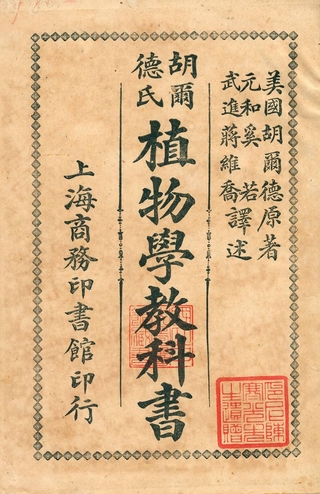 美國胡爾德原著
元和奚若
武進蔣維喬譯述
胡爾德氏
植物學教科書
上海商務印書館印行